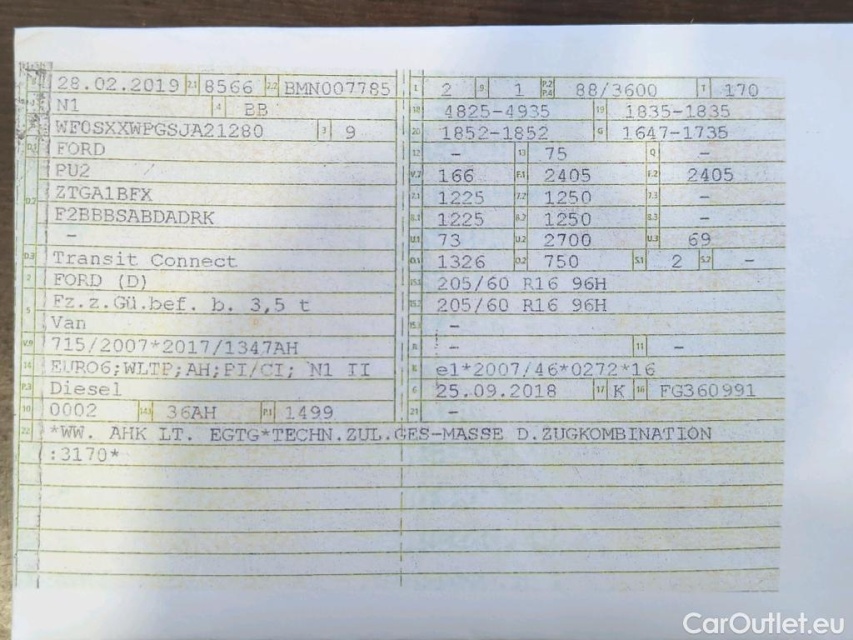 28.02.2019 2.1 8566 2.2 BMN007785
N1 4 BB
WF0SXXWPGSJA21280 3 9
FORD
PU2
ZTGA1BFX
F2BBBSABDADRK
-
D.3 Transit Connect
2 FORD (D)
5 Fz.z.Gü.bef. b. 3,5 t
Van
V.9 715/2007*2017/1347AH
14 EURO6;WLTP;AH;PI/CI; N1 II
P.3 Diesel
10 0002 14.1 36AH P.1 1499
22 *WW. AHK LT. EGTG*TECHN.ZUL.GES-MASSE D.ZUGKOMBINATION
:3170*
L 2 9 1 P.2 P.4 88/3600 T 170
18 4825-4935 19 1835-1835
20 1852-1852 G 1647-1735
12 - 13 75 Q -
V.7 166 F.1 2405 F.2 2405
7.1 1225 7.2 1250 7.3 -
8.1 1225 8.2 1250 8.3 -
U.1 73 U.2 2700 U.3 69
O.1 1326 O.2 750 S.1 2 S.2 -
15.1 205/60 R16 96H
15.2 205/60 R16 96H
15.3 -
R - 11 -
K e1*2007/46*0272*16
6 25.09.2018 17 K 16 FG360991
21 -
CarOutlet.eu